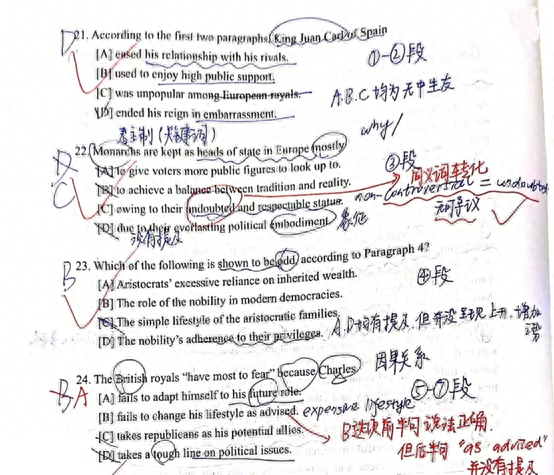 D
21. According to the first two paragraphs, King Juan Carlos of Spain
[A] eased his relationship with his rivals.
①-②段
[B] used to enjoy high public support.
[C] was unpopular among European royals.
A.B.C均为无中生友
[D] ended his reign in embarrassment.
why/
君主制(关键词)
22. Monarchs are kept as heads of state in Europe mostly
③段
C
[A] to give voters more public figures to look up to.
同义词转化
[B] to achieve a balance between tradition and reality.
non-controversial = undoubted
[C] owing to their undoubted and respectable status.
无可争议
[D] due to their everlasting political embodiment.
象征
没有提及
B
23. Which of the following is shown to be odd, according to Paragraph 4?
[A] Aristocrats' excessive reliance on inherited wealth.
④段
[B] The role of the nobility in modern democracies.
[C] The simple lifestyle of the aristocratic families.
A.D均有提及,但并没呈现上升、增加
[D] The nobility's adherence to their privileges.
因果关系
24. The British royals "have most to fear" because Charles
⑤-⑦段
B A
[A] fails to adapt himself to his future role.
[B] fails to change his lifestyle as advised.
expensive lifestyle
[C] takes republicans as his potential allies.
B选项前半句说法正确.
[D] takes a tough line on political issues.
但后半句"as advised"
并没有提及